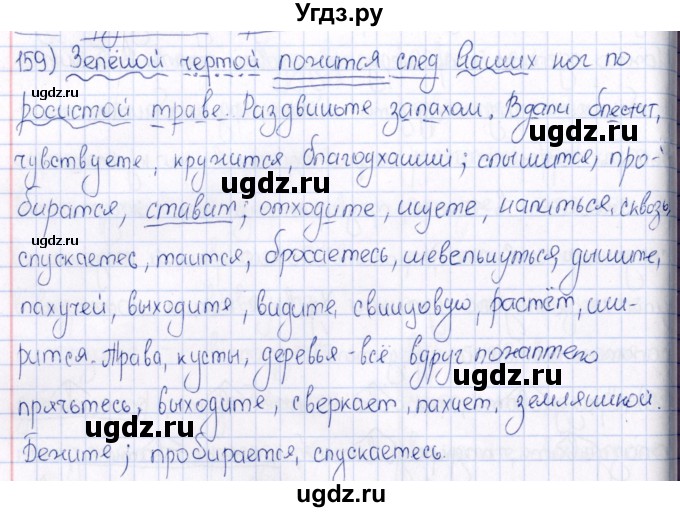 Угдз.ру
159) Зелёной чертой ложится след Ваших ног по
росистой траве. Раздвиньте запахом. Вдали блестит,
чувствуете, кружится, благоухаший; слышится, про-
биратся, стават; отходите, ищете, напиться, сквозь,
спускаетес, таится, бросаетесь, шевельнуться, дышите,
пахучей, выходите, видите, свинцовую, растёт, ши-
рится. Трава, кусты, деревья - всё вдруг
прячьтесь, выходите, сверкает, пахнет, земляникой.
Бежите; пробирается, спускаетесь.
ugdz.ru
ugdz.ru
ugdz.ru
ugdz.ru
ugdz.ru
ugdz.ru
ugdz.ru
ugdz.ru
ugdz.ru
ugdz.ru
ugdz.ru